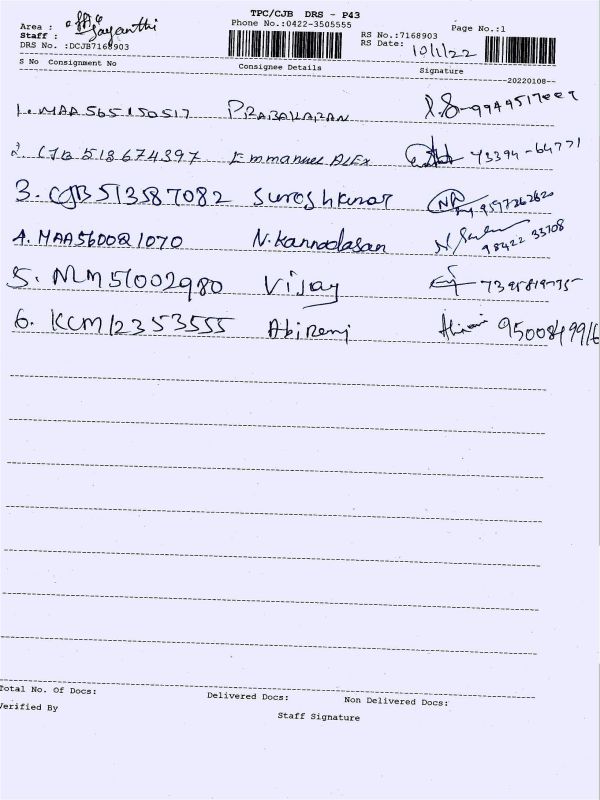 TPC/CJB DRS - P43
Area : office
Phone No.:0422-3505555
Page No.:1
Staff : Jayanthi
RS No.:7168903
DRS No. :DCJB7168903
RS Date: 10/1/22
S No Consignment No Consignee Details Signature
20220108
1. MAA565150517 PRABAKARAN
2. CJB 518674397 Emmanuel ALEX 73394-64771
3. CJB513587082 Sureshkumar 9597262620
4. MAA560021070 N. Kannadasan 98422 33708
5. NLM51002980 Vijay
6. KCM12353555 Abirami
Total No. Of Docs: Delivered Docs: Non Delivered Docs:
Verified By
Staff Signature